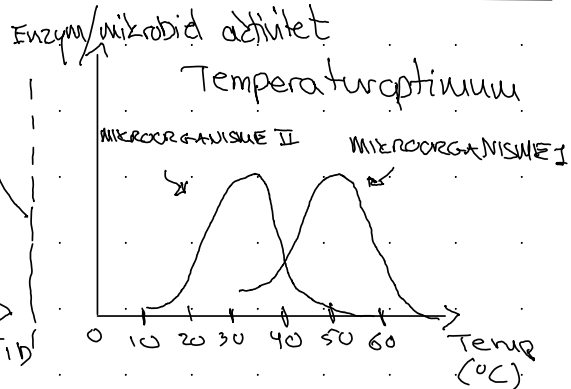 Enzym/mikrobiel aktivitet
Temperaturoptimum
MIKROORGANISME II
MIKROORGANISME I
0 10 20 30 40 50 60
Temp
(°C)